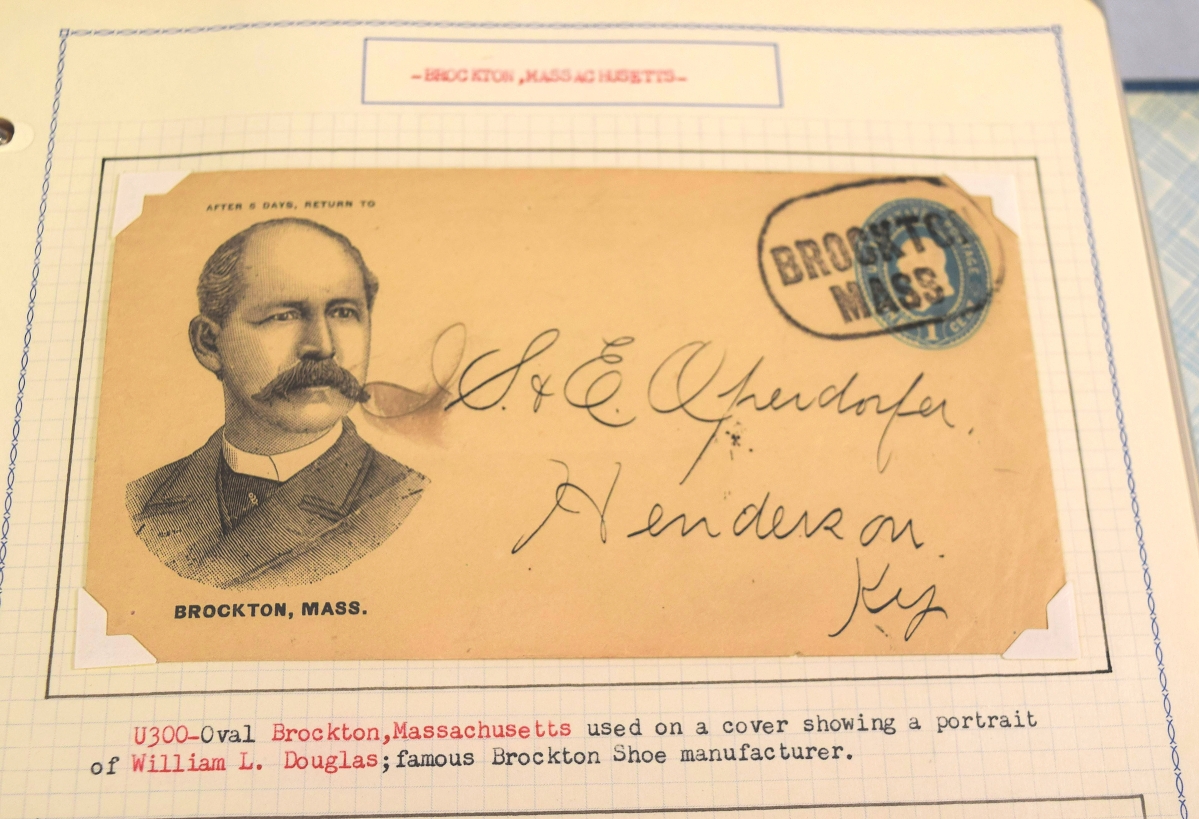 -BROCKTON,MASSACHUSETTS-
AFTER 5 DAYS, RETURN TO
BROCKTON
MASS
POSTAGE
1 CENT
S. & E. Operdorfer.
Henderson.
Ky
BROCKTON, MASS.
U300-Oval Brockton,Massachusetts used on a cover showing a portrait
of William L. Douglas;famous Brockton Shoe manufacturer.